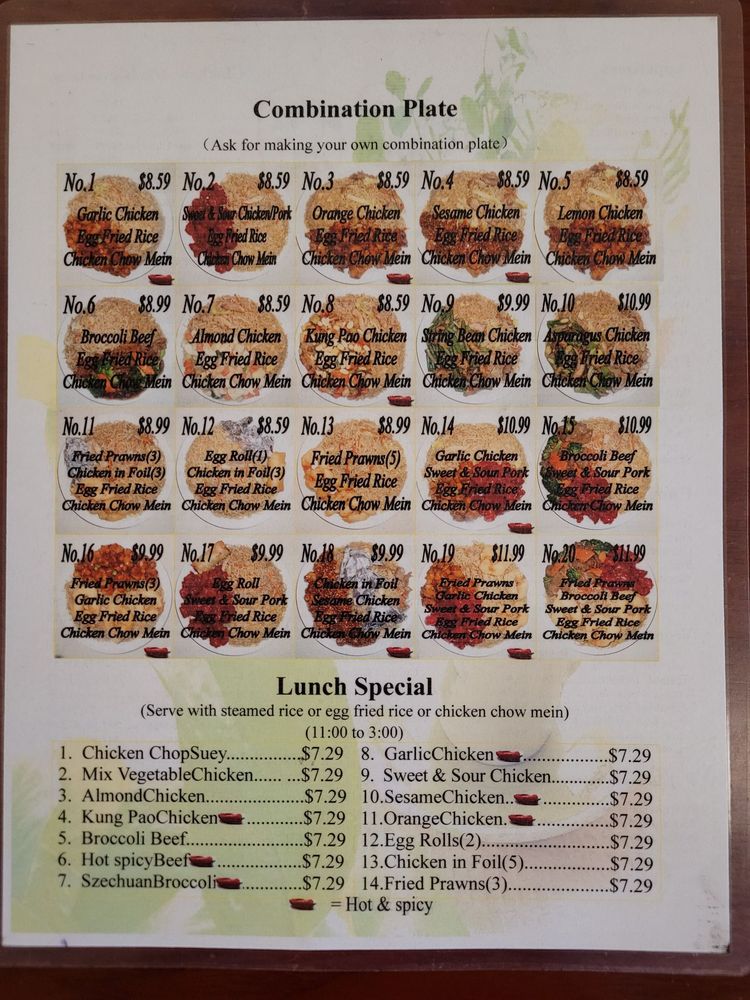 Combination Plate
(Ask for making your own combination plate)
No.1 $8.59
Garlic Chicken
Egg Fried Rice
Chicken Chow Mein
No.2 $8.59
Sweet & Sour Chicken/Pork
Egg Fried Rice
Chicken Chow Mein
No.3 $8.59
Orange Chicken
Egg Fried Rice
Chicken Chow Mein
No.4 $8.59
Sesame Chicken
Egg Fried Rice
Chicken Chow Mein
No.5 $8.59
Lemon Chicken
Egg Fried Rice
Chicken Chow Mein
No.6 $8.99
Broccoli Beef
Egg Fried Rice
Chicken Chow Mein
No.7 $8.59
Almond Chicken
Egg Fried Rice
Chicken Chow Mein
No.8 $8.59
Kung Pao Chicken
Egg Fried Rice
Chicken Chow Mein
No.9 $9.99
String Bean Chicken
Egg Fried Rice
Chicken Chow Mein
No.10 $10.99
Asparagus Chicken
Egg Fried Rice
Chicken Chow Mein
No.11 $8.99
Fried Prawns(3)
Chicken in Foil(3)
Egg Fried Rice
Chicken Chow Mein
No.12 $8.59
Egg Roll(1)
Chicken in Foil(3)
Egg Fried Rice
Chicken Chow Mein
No.13 $8.99
Fried Prawns(5)
Egg Fried Rice
Chicken Chow Mein
No.14 $10.99
Garlic Chicken
Sweet & Sour Pork
Egg Fried Rice
Chicken Chow Mein
No.15 $10.99
Broccoli Beef
Sweet & Sour Pork
Egg Fried Rice
Chicken Chow Mein
No.16 $9.99
Fried Prawns(3)
Garlic Chicken
Egg Fried Rice
Chicken Chow Mein
No.17 $9.99
Egg Roll
Sweet & Sour Pork
Egg Fried Rice
Chicken Chow Mein
No.18 $9.99
Chicken in Foil
Sesame Chicken
Egg Fried Rice
Chicken Chow Mein
No.19 $11.99
Fried Prawns
Garlic Chicken
Sweet & Sour Pork
Egg Fried Rice
Chicken Chow Mein
No.20 $11.99
Fried Prawns
Broccoli Beef
Sweet & Sour Pork
Egg Fried Rice
Chicken Chow Mein
Lunch Special
(Serve with steamed rice or egg fried rice or chicken chow mein)
(11:00 to 3:00)
1. Chicken ChopSuey..............$7.29
2. Mix VegetableChicken...... ...$7.29
3. AlmondChicken..................$7.29
4. Kung PaoChicken...............$7.29
5. Broccoli Beef......................$7.29
6. Hot spicyBeef...................$7.29
7. SzechuanBroccoli...............$7.29
8. GarlicChicken....................$7.29
9. Sweet & Sour Chicken............$7.29
10.SesameChicken..................$7.29
11.OrangeChicken..................$7.29
12.Egg Rolls(2)......................$7.29
13.Chicken in Foil(5)................$7.29
14.Fried Prawns(3)..................$7.29
= Hot & spicy